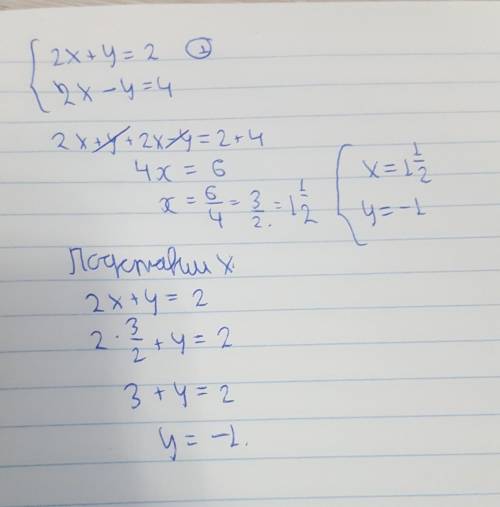 2x+y=2 ⊕
2x-y=4
2x+y+2x-y=2+4
4x=6
x=6/4=3/2=1 1/2
x=1 1/2
y=-1
Подставим x.
2x+y=2
2·3/2+y=2
3+y=2
y=-1.